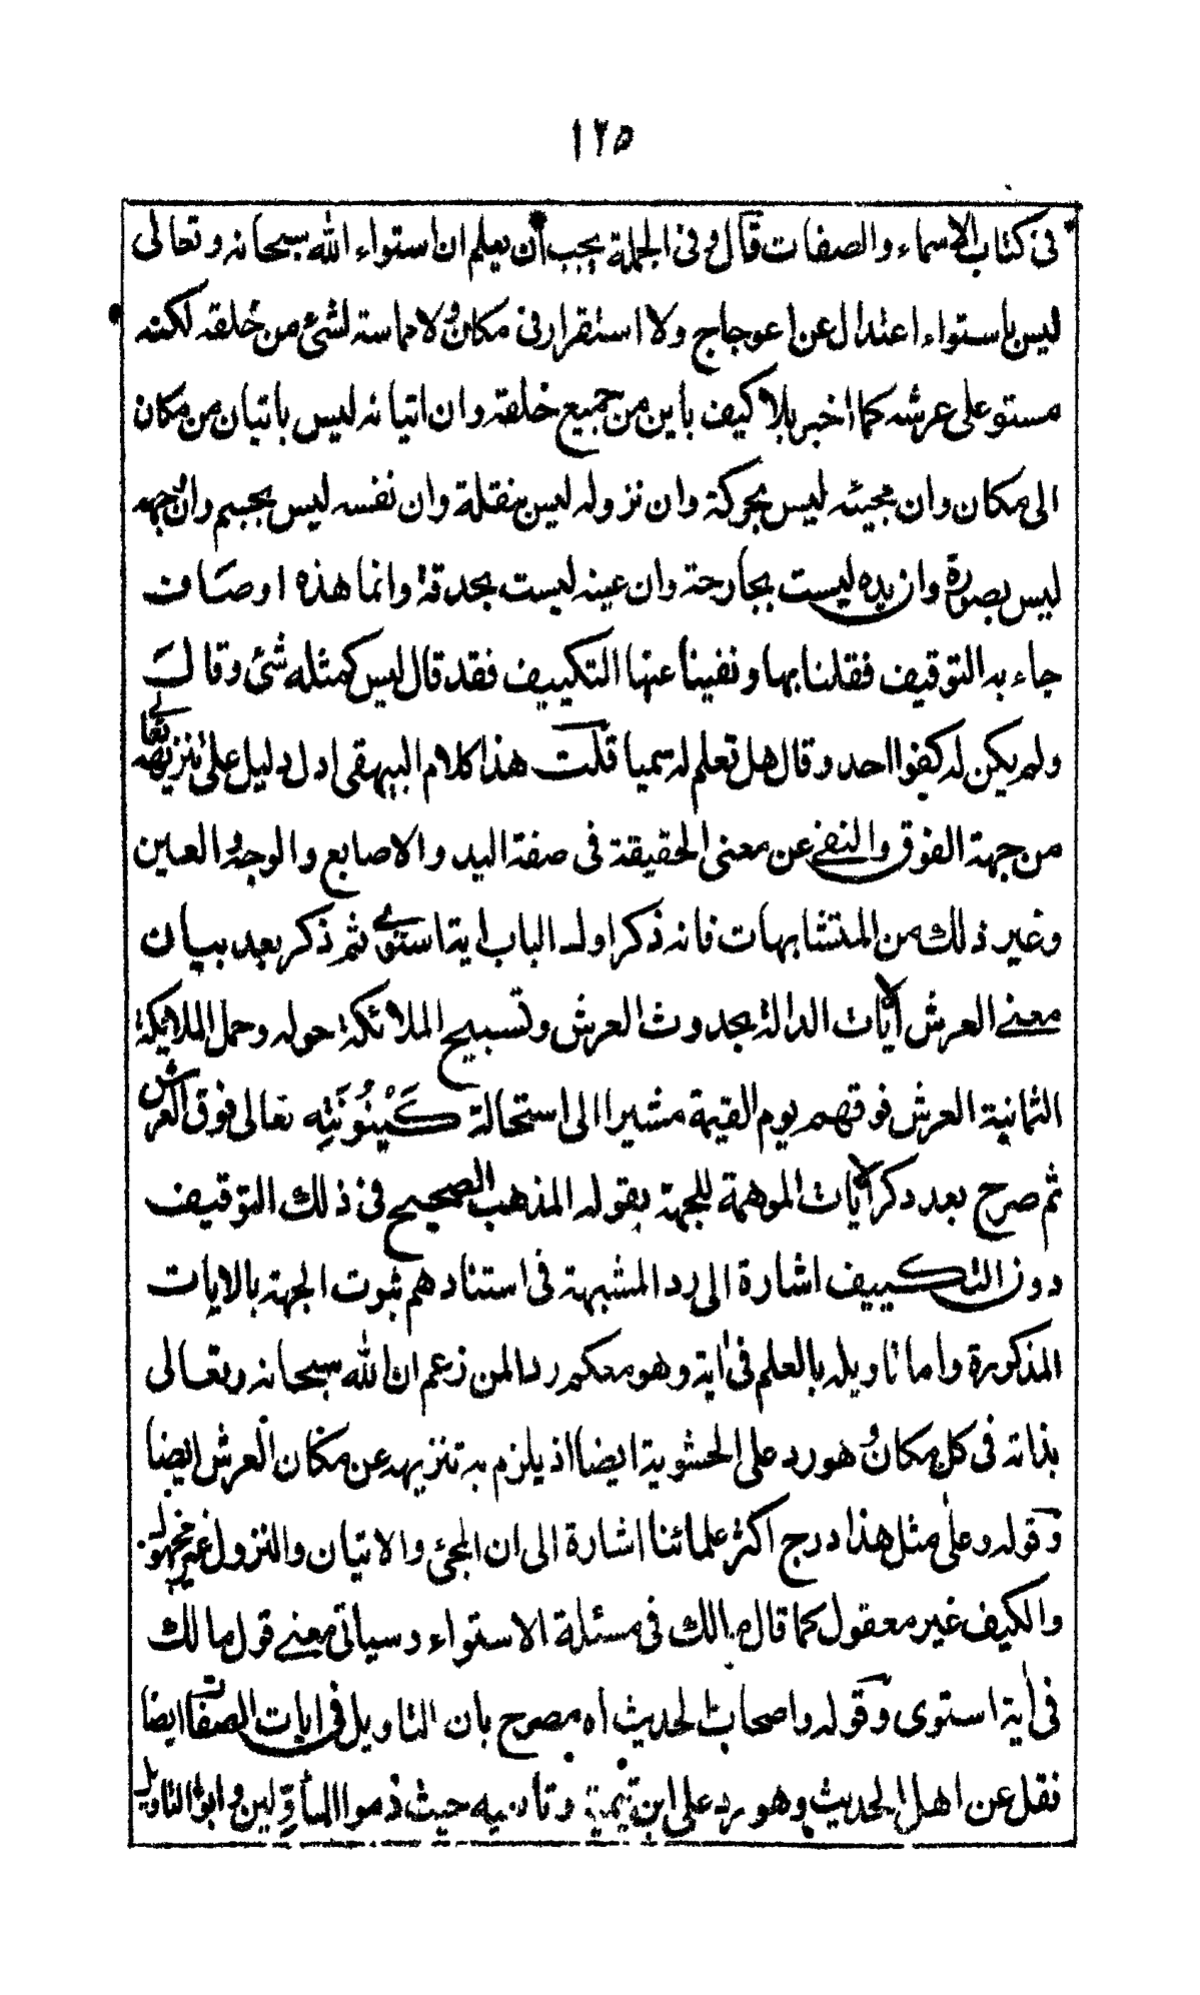 ١٢٥
فی کتاب الاسماء والصفات قال وفی الجملة یجب ان یعلم ان استواء الله سبحانه وتعالی
لیس باستواء اعتدال عن اعوجاج ولا استقرار فی مکان ولا مماسة لشئ من خلقه لکنه
مستو علی عرشه کما اخبر بلا کیف باین من جمیع خلقه وان اتیانه لیس باتیان من مکان
الی مکان وان مجیئه لیس بحرکة وان نزوله لیس بنقلة وان نفسه لیس بجسم وان وجهه
لیس بصورة وان یده لیست بجارحة وان عینه لیست بحدقة وانما هذه اوصاف
جاء به التوقیف فقلنا بها ونفینا عنها التکییف فقد قال لیس کمثله شئ وقال
ولم یکن له کفوا احد وقال هل تعلم له سمیا قلت هذا کلام البیهقی ادل دلیل علی تنزیهه تعالی
من جهة الفوق والنفی عن معنی الحقیقة فی صفة الید والاصابع والوجه والعین
وغیر ذلک من المتشابهات فانه ذکر اول الباب ایة استوی ثم ذکر بعد بیان
معنے العرش الآیات الدالة بحدوث العرش وتسبیح الملائکة حوله وحمل الملائکة
الثمانیة العرش فوقهم یوم القیمة مشیرا الی استحالة کَیْنُوْنَتِه تعالی فوق العرش
ثم صرح بعد ذکر الآیات الموهمة للجهة بقوله المذهب الصحیح فی ذلک التوقیف
دون التکییف اشارة الی رد المشبهة فی استنادهم ثبوت الجهة بالایات
المذکورة واما تاویله بالعلم فی اٰیة وهو معکم رد المن زعم ان الله سبحانه وتعالی
بذاته فی کل مکان وهو رد علی الحشویة ایضا اذ یلزم به تنزیهه عن مکان العرش ایضا
وقوله وعلی مثل هذا درج اکثر علمائنا اشارة الی ان المجئ والاتیان والنزول غیر مجهول
والکیف غیر معقول کما قال مالک فی مسئلة الاستواء وسیاتی معنے قول مالک
فی اٰیة استوی وقوله واصحاب الحدیث اه مصرح بان التاویل فی ایات الصفات ایضا
نقل عن اهل الحدیث وهو رد علی ابن تیمیة وتابعیه حیث ذموا المأوِّلین وابوا التاویل